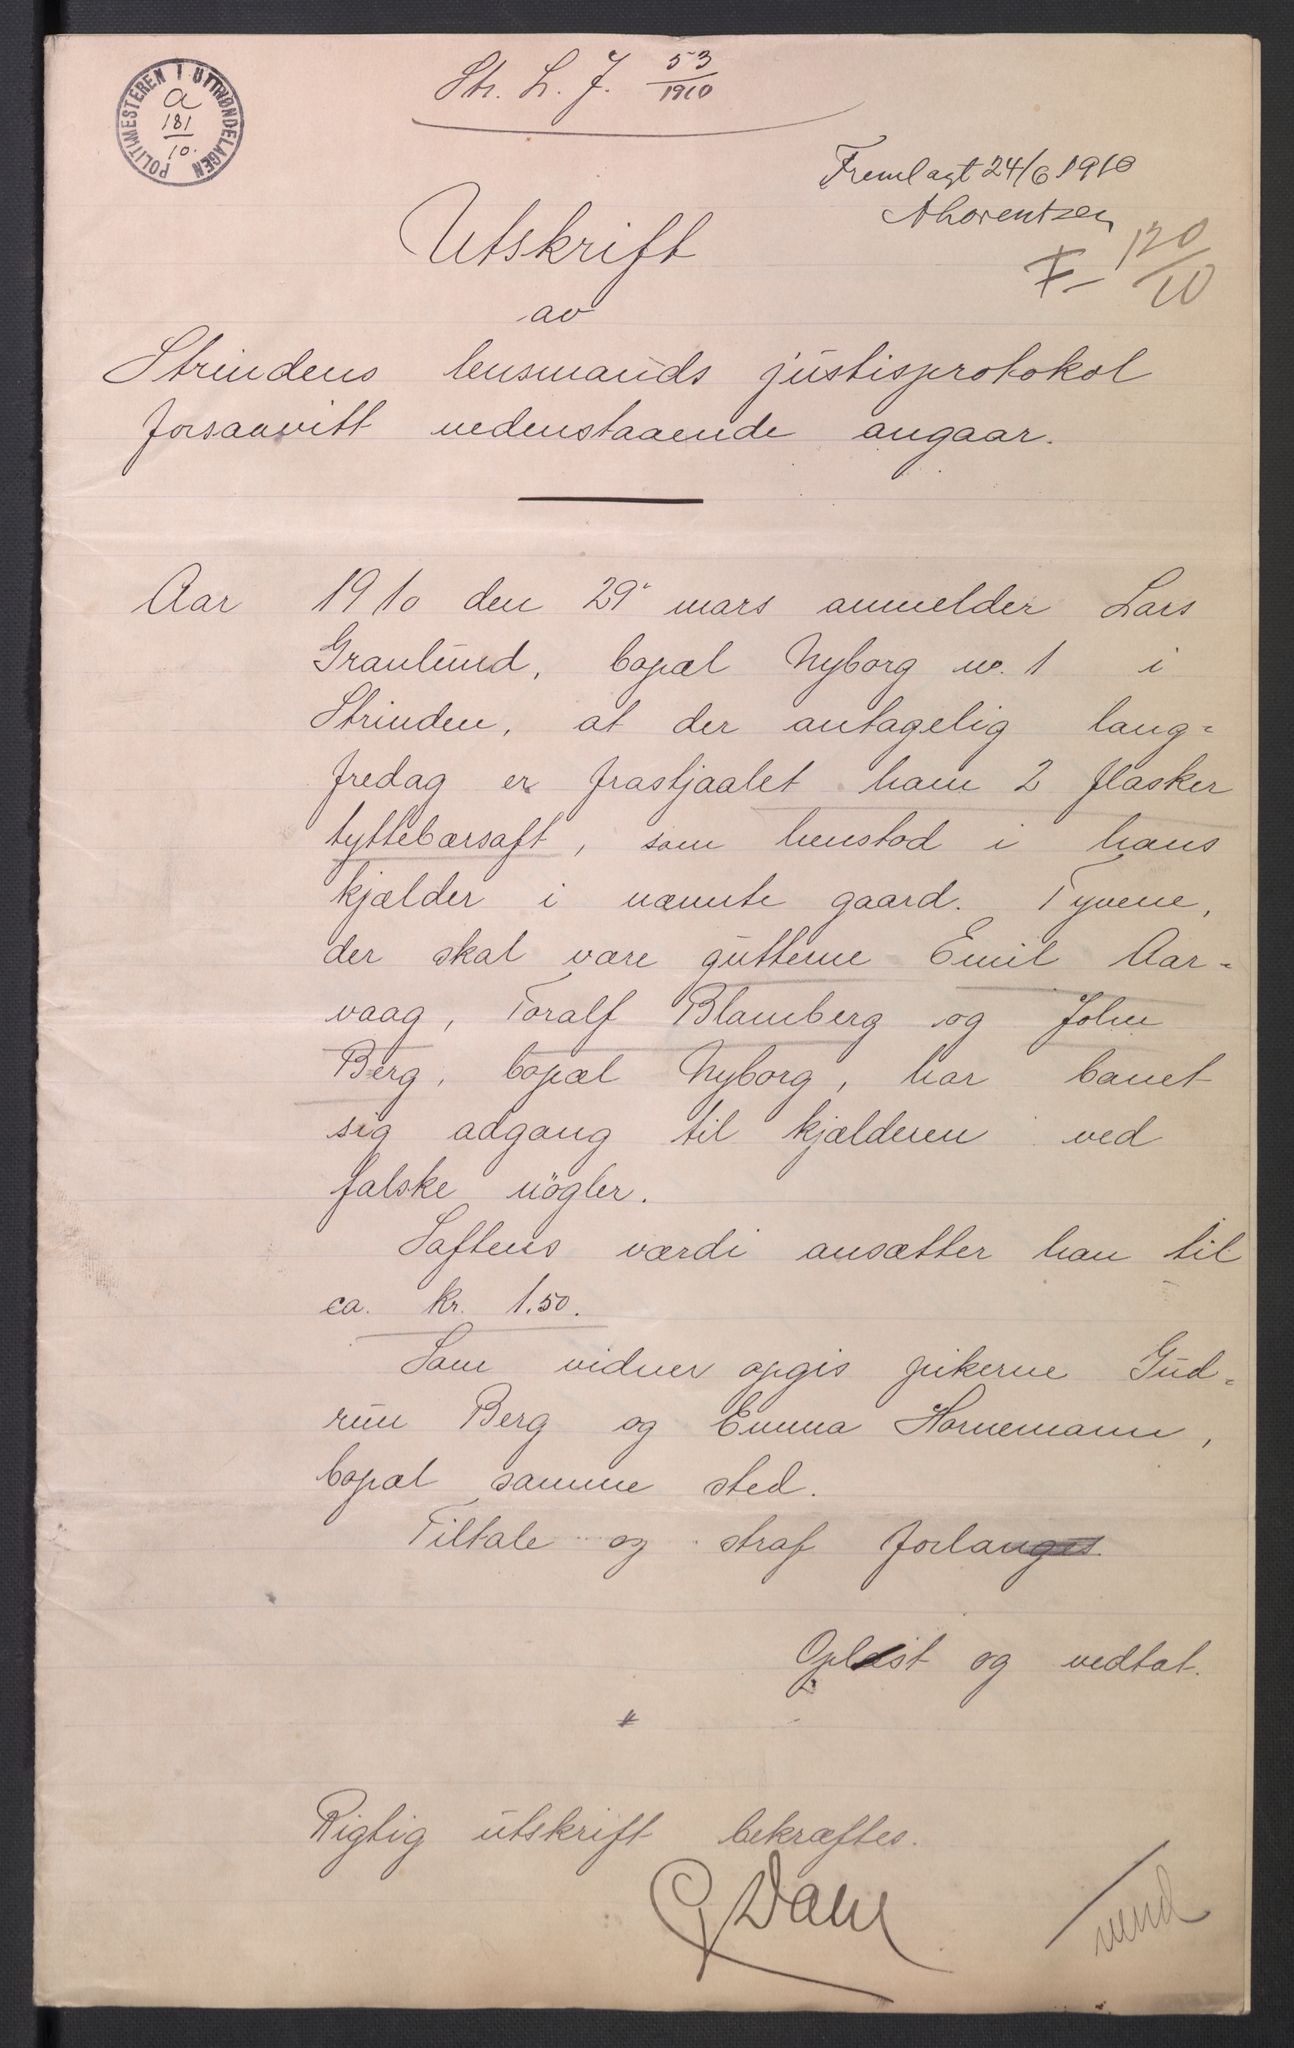 Str. L. J. 53/1910
POLITIMESTEREN I UTTRØNDELAGEN
a
181
10.
Fremlagt 24/6 1910
A Lorentzen
F- 120/10
Utskrift
av
Strindens lensmands justisprotokol
forsaavitt nedenstaaende angaar.
Aar 1910 den 29' mars anmelder Lars
Granlund, bopæl Nyborg no. 1 i
Strinden, at der antagelig lang=
fredag er frastjaalet ham 2 flasker
tyttebærsaft, som henstod i hans
kjælder i nævnte gaard. Tyvene,
der skal være gutterne Emil Aar=
vaag, Toralf Blamberg og John
Berg, bopæl Nyborg, har banet
sig adgang til kjælderen ved
falske nögler.
Saftens værdi ansætter han til
ca. kr. 1.50.
Som vidner opgis pikerne Gud=
run Berg og Emma Hornemann,
bopæl samme sted.
Tiltale og straf forlanges
Oplæst og vedtat.
Rigtig utskrift bekræftes.
G Dahl
vend